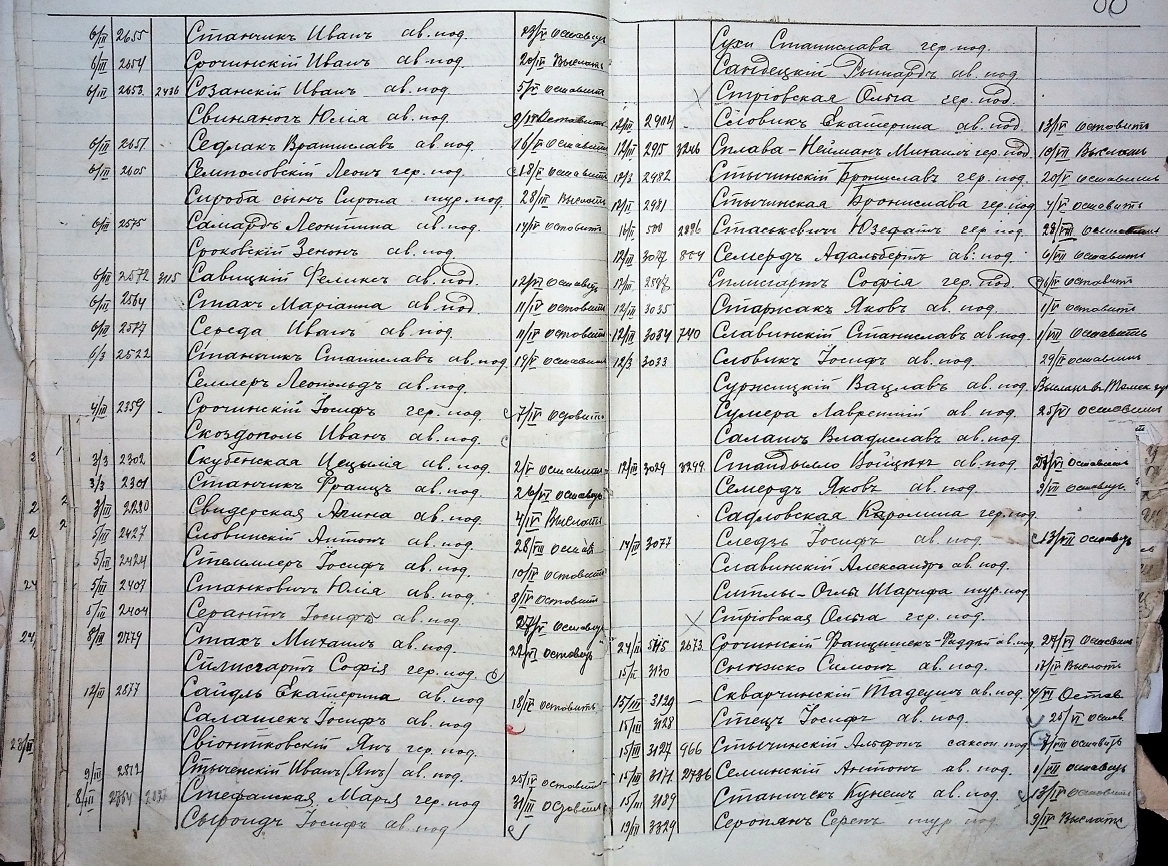 6/III 2655 Станчикъ Иванъ ав. под. 23/IV оставить
6/III 2654 Срочинскій Иванъ ав. под. 20/IV Выслать
6/III 2653 2436 Созанскій Иванъ ав. под. 5/V оставить
Юлія ав. под. 9/IV Оставить
6/III 2657 Седлакъ Вратиславъ ав. под. 16/V оставить
6/III 2605 Семполовскій Леонъ гер. под. 18/V оставить
Сироба сынъ Сирона тур. под. 28/III Выслать
6/III 2575 Самардъ Леонтина ав. под. 14/V оставить
Сроковскій Зенонъ ав. под.
6/III 2572 3115 Савицкій Феликсъ ав. под. 12/VII оставить
6/III 2564 Стахъ Маріанна ав. под. 11/IV оставить
6/III 2577 Середа Иванъ ав. под. 11/IV оставить
6/3 2522 Станчикъ Станиславъ ав. под. 19/V оставить
Семлеръ Леопольдъ ав. под.
4/III 2359 Срочинскій Іосифъ гер. под. 7/IV оставить
Скоздополь Иванъ ав. под.
3/3 2302 Скубенская Цецылія ав. под. 2/V оставить
3/3 2301 Станчикъ Францъ ав. под. 26/VI оставить
3/III 2220 Свидерская Анина ав. под. 4/IV Выслать
5/III 2427 Словинскій Антонъ ав. под. 28/VII остав
5/III 2424 Стеллмеръ Іосифъ ав. под. 10/IV оставить
5/III 2407 Станковичъ Юлія ав. под. 8/IV оставить
5/III 2404 Серантъ Іосифъ ав. под. 27/V оставить
8/III 2779 Стахъ Михаилъ ав. под. 22/VI оставить
Сплисгартъ Софія гер. под.
12/III 2877 Сайдль Екатерина ав. под 18/IV оставить
Салашекъ Іосифъ ав. под
Свіонтковскій Янъ гер. под.
9/III 2812 Стыченскій Иванъ (Янъ) ав. под. 25/IV оставить
8/III 2764 Стефанская Марія гер. под. 31/IV Оставить
Сыроидъ Іосифъ ав. под
Сухи Станислава гер. под.
Сандецкій Рышардъ ав. под
Стріовская Ольга гер. под.
12/III 2904 Словикъ Екатерина ав. под 13/IV оставить
12/III 2915 3246 Сплава-Нейманъ Михаилъ гер. под 10/VII Выслать
12/3 2982 Стычинскій Брониславъ гер. под. 20/V оставить
12/III 2981 Стычинская Бронислава гер. под. 4/V оставить
16/II 500 2896 Стаськевичъ Юзефатъ гер. под 28/VIII оставить
12/III 3072 804 Семердъ Адальбертъ ав. под. 6/VII оставить
Сплисгартъ Софія гер. под. 6/IV оставить
12/III 3035 Старжакъ Яковъ ав. под. 1/V оставить
12/III 3034 740 Славинскій Станиславъ ав. под 1/VII оставить
12/3 3033 Словикъ Іосифъ ав. под. 29/IV оставить
Суржицкій Вацлавъ ав. под. Высланъ въ Томск. губ
Сумера Лаврентій ав. под. 25/IV оставить
Саланъ Владиславъ ав. под.
12/III 3029 3299 Стандылло Войцехъ ав. под. 27/VI оставить
Семердъ Яковъ ав. под. 3/VII оставить
Садловская Каролина гер. под.
14/III 3077 Следзь Іосифъ ав. под 13/VII оставить
Славинскій Александръ ав. под.
Ситлы-Оглы Шарифа тур. под.
Стріовская Ольга гер. под.
24/II 2673 Срочинскій Францишекъ-Фаддей ав. под 27/VI оставить
15/II 3130 Снѣжко Симонъ ав. под. 17/IV Выслать
15/III 3129 Скварчинскій Тадеушъ ав. под. 7/VI Остав
15/III 3128 Стецъ Іосифъ ав. под. 25/VI остав.
15/III 3127 966 Стычинскій Альфонсъ саксон. под. 7/VIII оставить
15/III 3171 2736 Семинскій Антонъ ав. под. 1/VII оставить
15/III 3189 Станичекъ ав. под 13/IV оставить
19/III 3329 Серопянъ Серепъ тур. под 9/IV Выслать